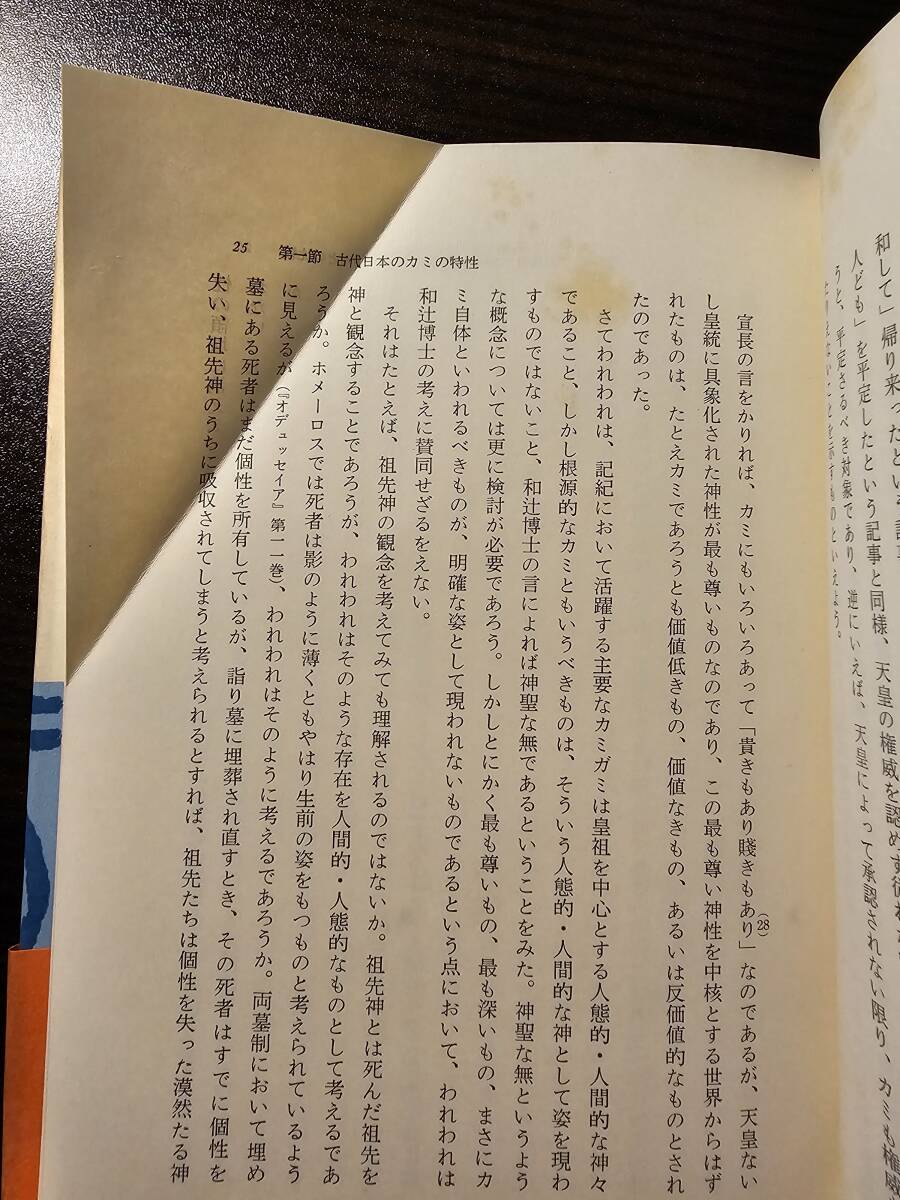 和して」帰り来ったという
人ども」を平定したという記事と同様、天皇の権威を認めず
うと、平定さるべき対象であり、逆にいえば、天皇によって承認されない限り、カミも権威
ないことを示すものといえよう。
25　第一節　古代日本のカミの特性
宣長の言をかりれば、カミにもいろいろあって「貴きもあり賤きもあり」(28)なのであるが、天皇ない
し皇統に具象化された神性が最も尊いものなのであり、この最も尊い神性を中核とする世界からはず
れたものは、たとえカミであろうとも価値低きもの、価値なきもの、あるいは反価値的なものとされ
たのであった。
さてわれわれは、記紀において活躍する主要なカミガミは皇祖を中心とする人態的・人間的な神々
であること、しかし根源的なカミともいうべきものは、そういう人態的・人間的な神として姿を現わ
すものではないこと、和辻博士の言によれば神聖な無であるということをみた。神聖な無というよう
な概念については更に検討が必要であろう。しかしとにかく最も尊いもの、最も深いもの、まさにカ
ミ自体といわれるべきものが、明確な姿として現われないものであるという点において、われわれは
和辻博士の考えに賛同せざるをえない。
それはたとえば、祖先神の観念を考えてみても理解されるのではないか。祖先神とは死んだ祖先を
神と観念することであろうが、われわれはそのような存在を人間的・人態的なものとして考えるであ
ろうか。ホメーロスでは死者は影のように薄くともやはり生前の姿をもつものと考えられているよう
に見えるが（『オデュッセイア』第一一巻）、われわれはそのように考えるであろうか。両墓制において埋め
墓にある死者はまだ個性を所有しているが、詣り墓に埋葬され直すとき、その死者はすでに個性を
失い、祖先神のうちに吸収されてしまうと考えられるとすれば、祖先たちは個性を失った漠然たる神